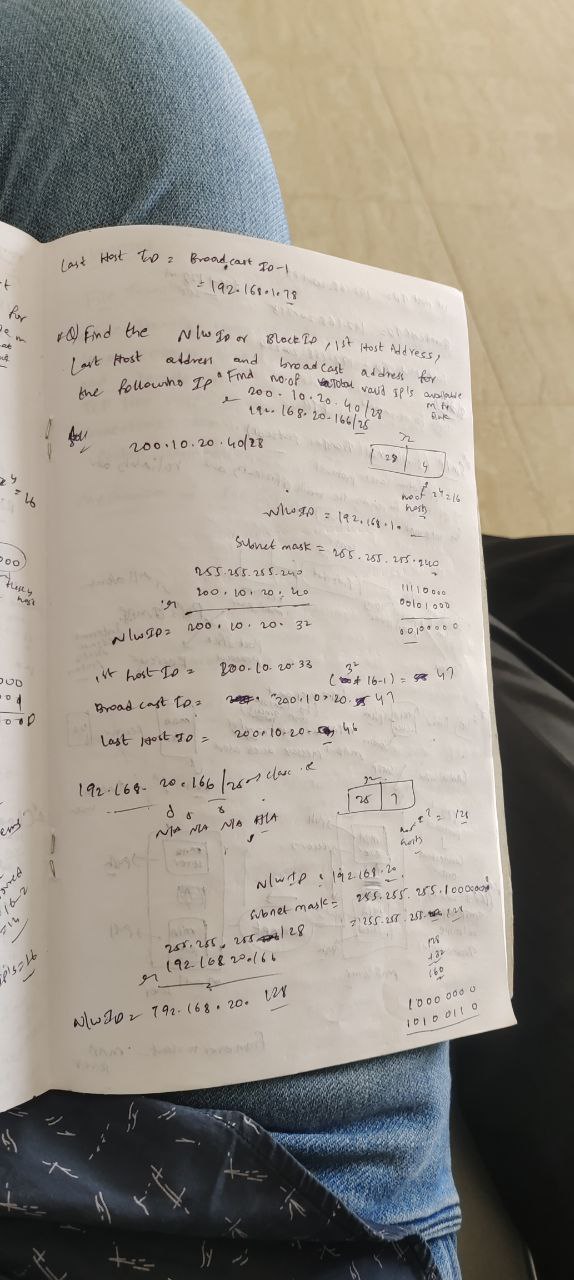 Last Host ID = Broadcast ID-1
= 192.168.1.78
Q) Find the N/w ID or Block ID, 1st Host Address,
Last Host address and broadcast address for
the following IP. Find no. of Total valid IP's available
200.10.20.40/28
192.168.20.166/25
200.10.20.40/28
28 4
no of 2^4=16
hosts
N/w ID = 192.168.1.
Subnet mask = 255.255.255.240
255.255.255.240
200.10.20.40
11110000
00101000
N/w ID = 200.10.20.32
00100000
1st host ID = 200.10.20.33
32
16-1) = 47
Broad cast ID = 200.10.20. 47
Last Host ID = 200.10.20. 46
192.168.20.166/25 class
N/A N/A N/A
25 7
= 128
hosts
N/w IP : 192.168.20.
Subnet mask = 255.255.255.10000000
= 255.255.255. 128
255.255.255 128
192.168.20.166
128
+32
160
N/w ID = 192.168.20. 128
10000000
10100110